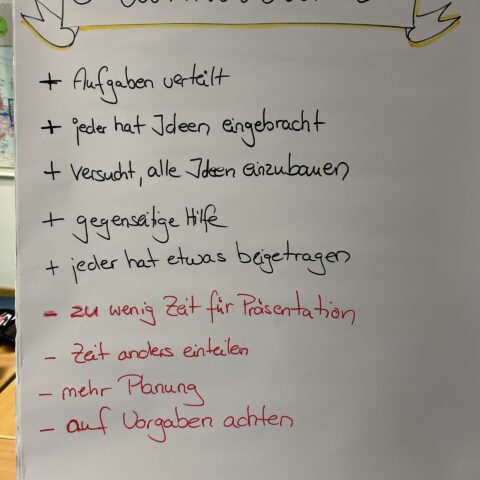 + Aufgaben verteilt
+ jeder hat Ideen eingebracht
+ versucht, alle Ideen einzubauen
+ gegenseitige Hilfe
+ jeder hat etwas beigetragen
- zu wenig Zeit für Präsentation
- Zeit anders einteilen
- mehr Planung
- auf Vorgaben achten